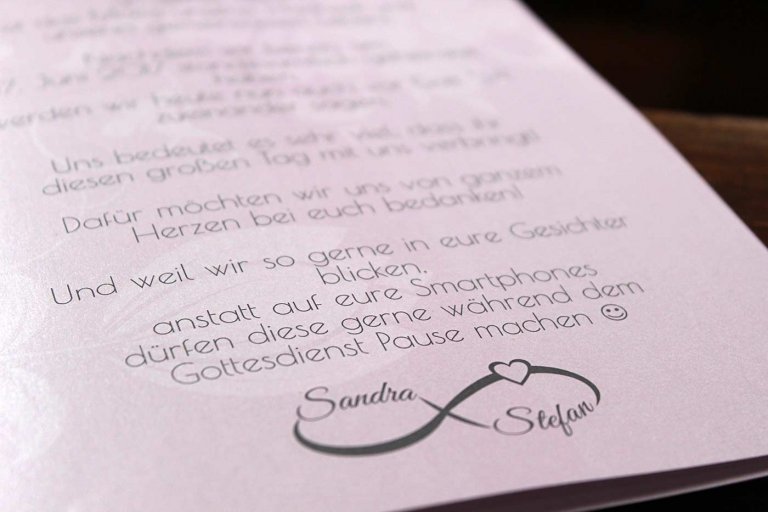 7. Juni 2017
werden wir heute nun auch vor Gott "Ja"
zueinander sagen.
Uns bedeutet es sehr viel, dass ihr
diesen großen Tag mit uns verbringt!
Dafür möchten wir uns von ganzem
Herzen bei euch bedanken!
Und weil wir so gerne in eure Gesichter
blicken,
anstatt auf eure Smartphones
dürfen diese gerne während dem
Gottesdienst Pause machen ☺
Sandra
Stefan